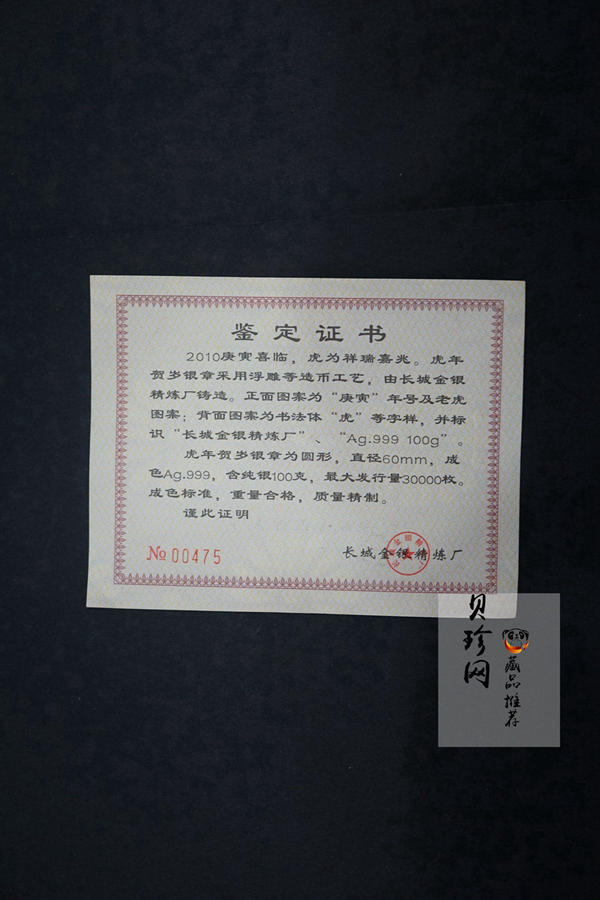 鉴定证书
2010庚寅喜临，虎为祥瑞嘉兆。虎年
贺岁银章采用浮雕等造币工艺，由长城金银
精炼厂铸造。正面图案为“庚寅”年号及老虎
图案；背面图案为书法体“虎”等字样，并标
识“长城金银精炼厂”、“Ag.999 100g”。
虎年贺岁银章为圆形，直径60mm，成
色Ag.999，含纯银100克，最大发行量30000枚。
成色标准，重量合格，质量精制。
谨此证明
№ 00475
长城金银精炼厂
贝珍网
藏品推荐